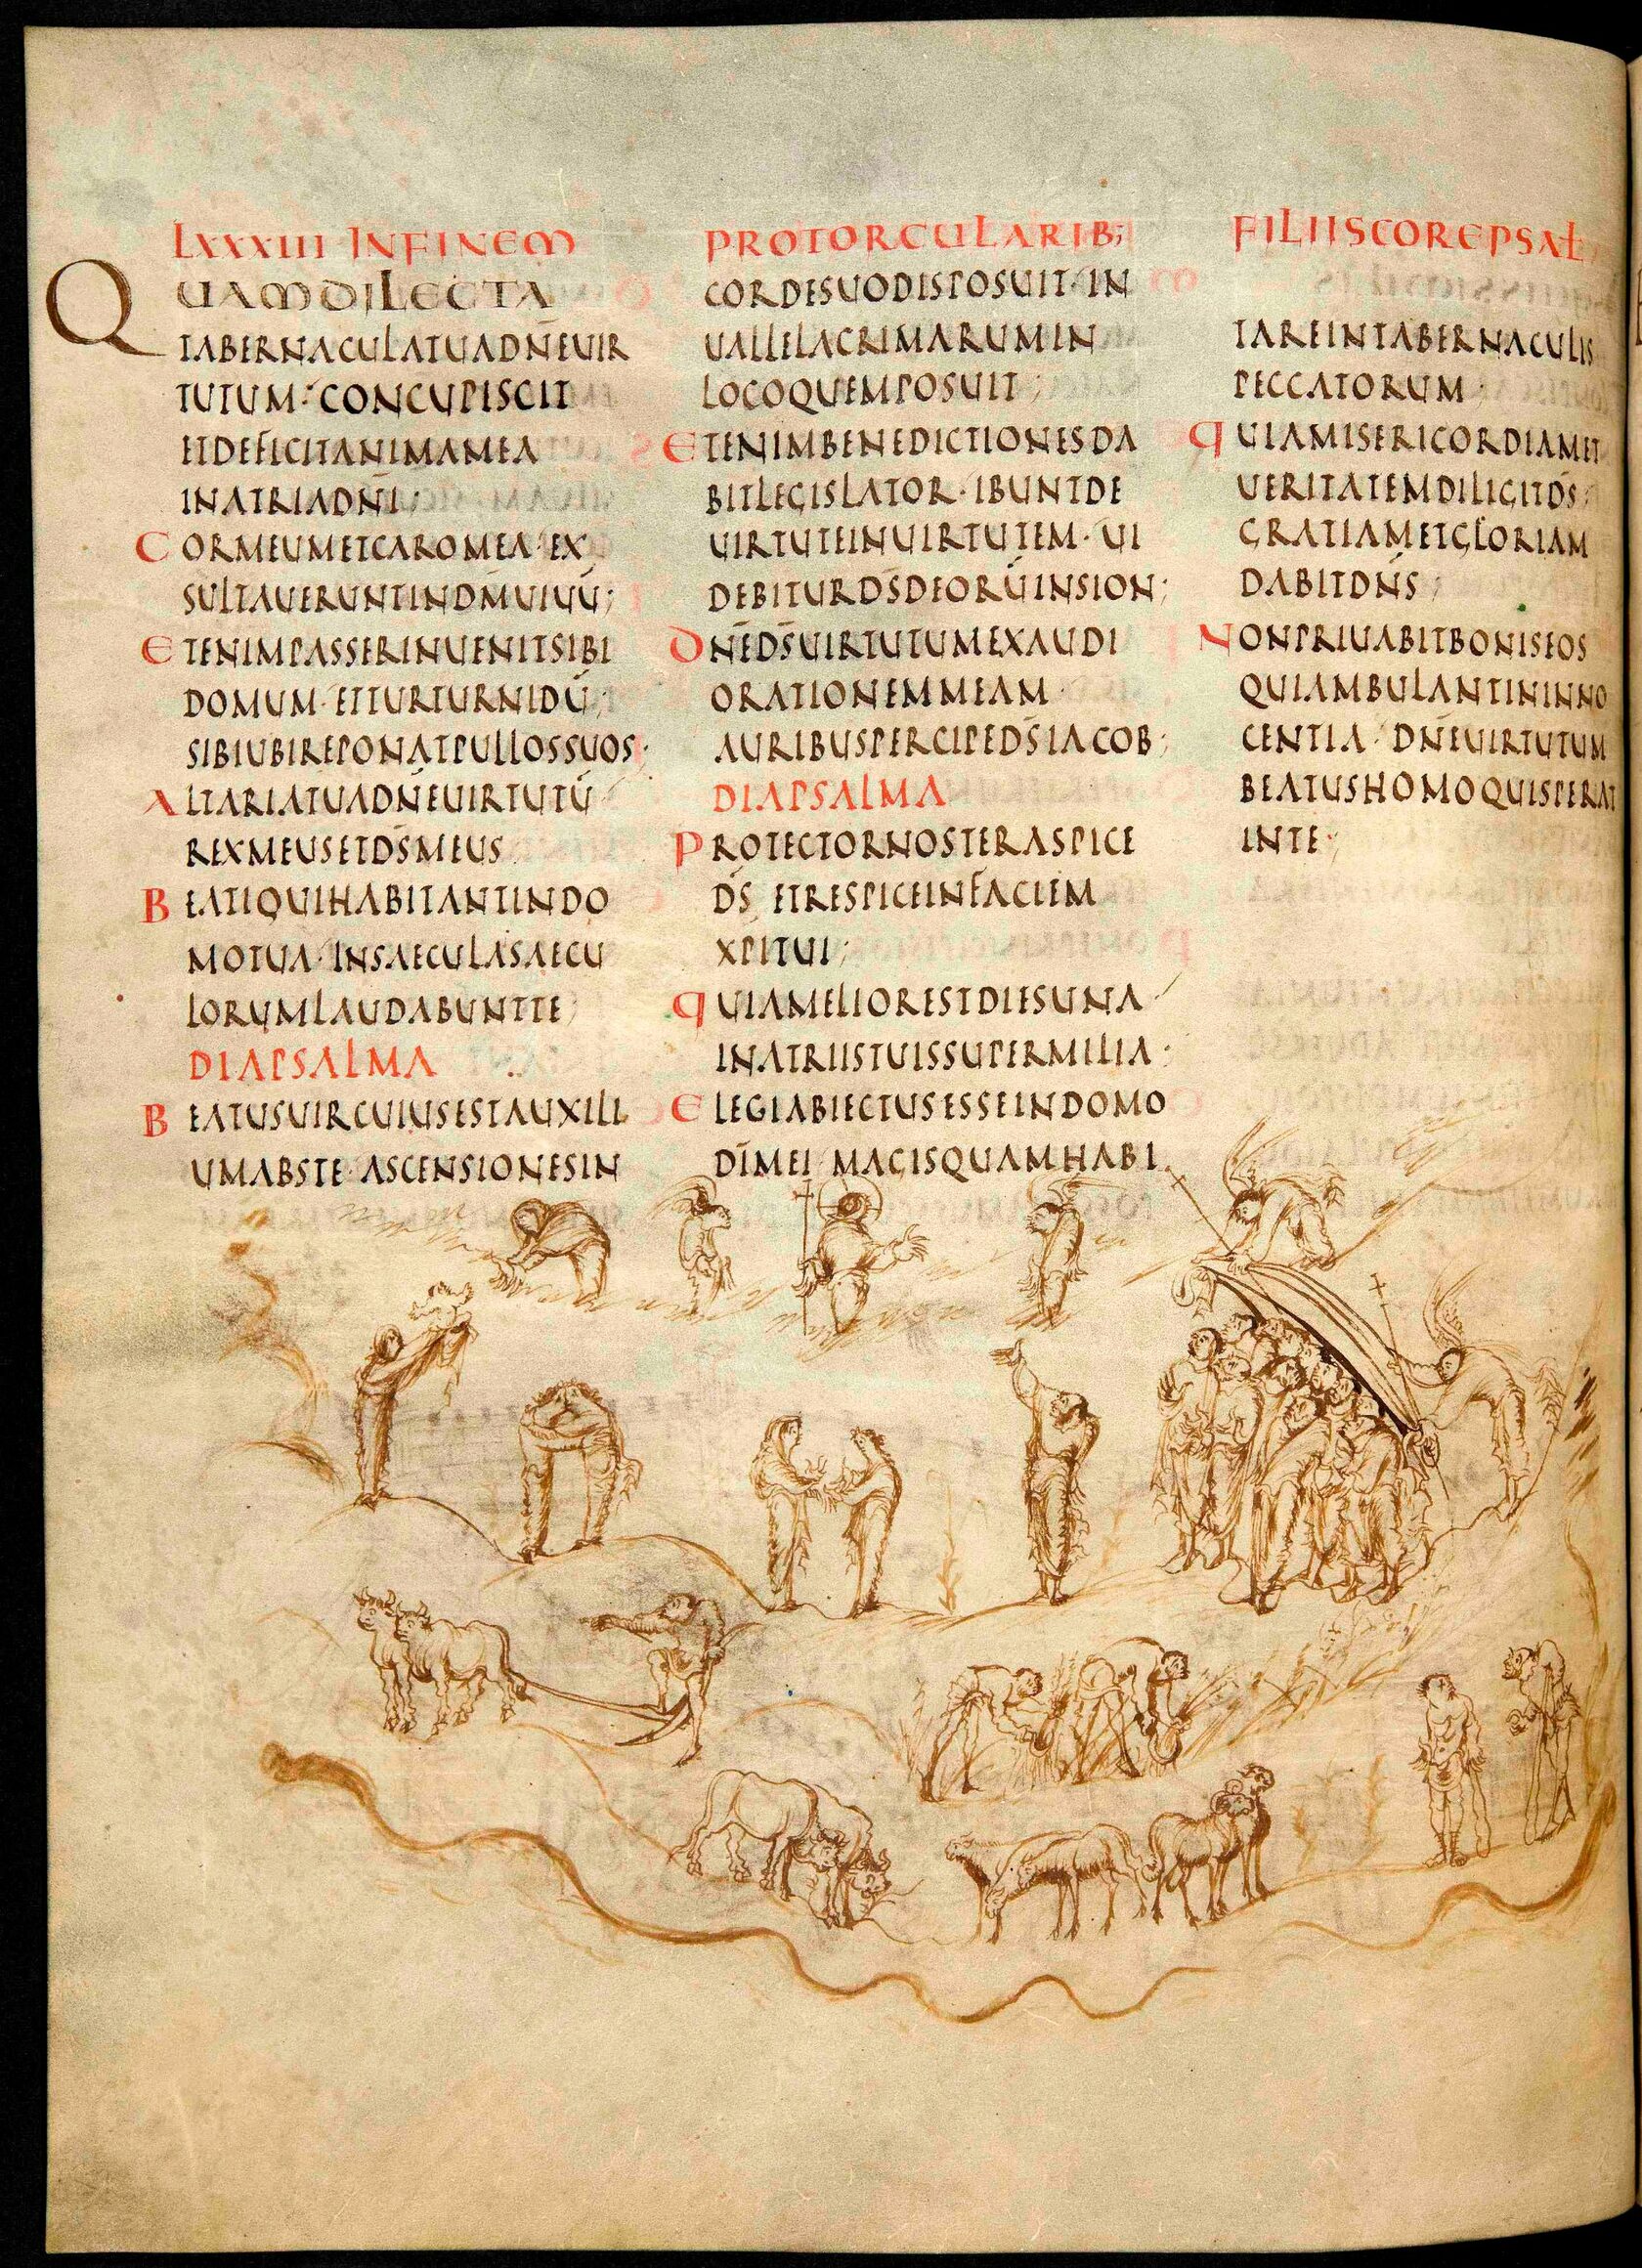 LXXXIII INFINEM
QUAMDILECTA
TABERNACULATUADN̄EUIR
TUTUM· CONCUPISCIT
ETDEFICITANIMAMEA
INATRIADN̄I;
CORMEUMETCAROMEA· EX
SULTAUERUNTINDM̄UIUŪ;
ETENIMPASSERINUENITSIBI
DOMUM· ETTURTURNIDŪ;
SIBIUBIREPONATPULLOSSUOS;
ALTARIATUADN̄EUIRTUTŪ
REXMEUSETDS̄MEUS
BEATIQUIHABITANTINDO
MOTUA· INSAECULASAECU
LORUMLAUDABUNTTE;
DIAPSALMA
BEATUSUIRCUIUSESTAUXILI
UMABSTE· ASCENSIONESIN
PROTORCULARIB;
CORDESUODISPOSUIT· IN
UALLELACRIMARUMIN
LOCOQUEMPOSUIT;
ETENIMBENEDICTIONESDA
BITLEGISLATOR· IBUNTDE
UIRTUTEINUIRTUTEM· UI
DEBITURDS̄DEORŪINSION;
DN̄EDS̄UIRTUTUMEXAUDI
ORATIONEMMEAM·
AURIBUSPERCIPEDS̄IACOB;
DIAPSALMA
PROTECTORNOSTERASPICE
DS̄ ETRESPICEINFACIEM
XPITUI;
QUIAMELIORESTDIESUNA
INATRIISTUISSUPERMILIA·
ELEGIABIECTUSESSEINDOMO
DĪMEI MAGISQUAMHABI
FILIISCOREPSAL
TAREINTABERNACULIS
PECCATORUM;
QUIAMISERICORDIAMET
UERITATEMDILIGITDS̄;
GRATIAMETGLORIAM
DABITDN̄S;
NONPRIUABITBONISEOS
QUIAMBULANTININNO
CENTIA· DN̄EUIRTUTUM
BEATUSHOMOQUISPERAT
INTE;